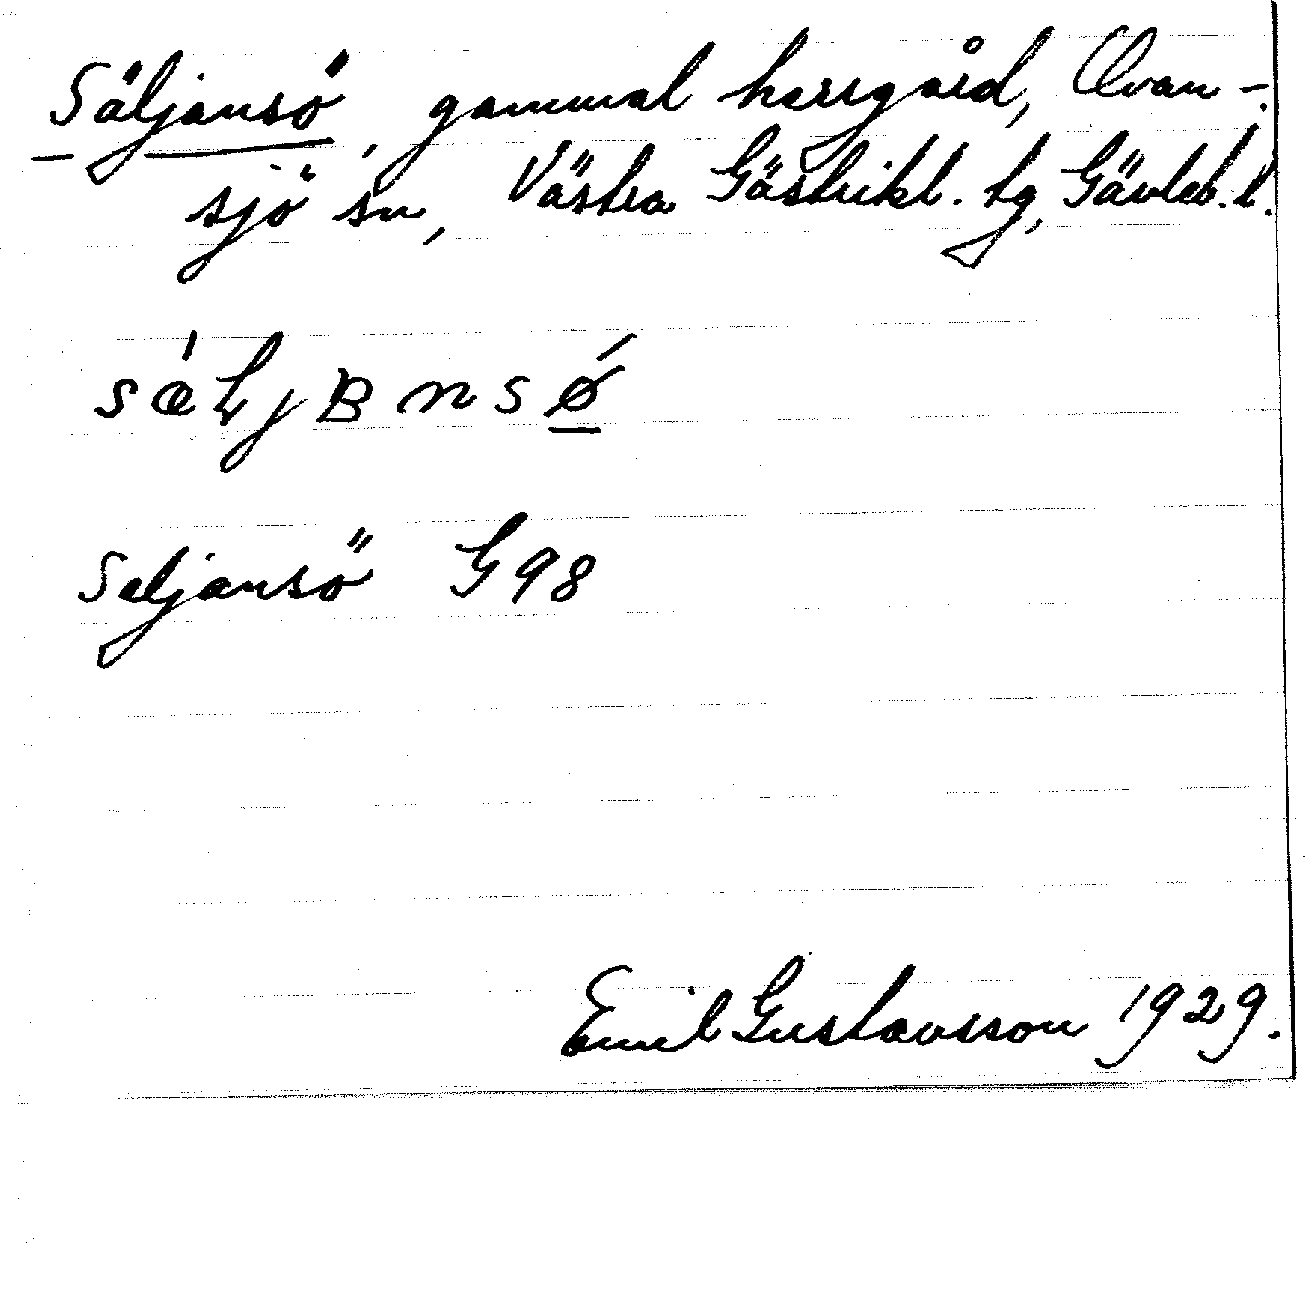 Säljansö, gammal herrgård, Ovan-
sjö sn, Västra Gästrikl. tg, Gävleb. l.
sæljʙnsø
Seljansö G98
Emil Gustavsson 1929.